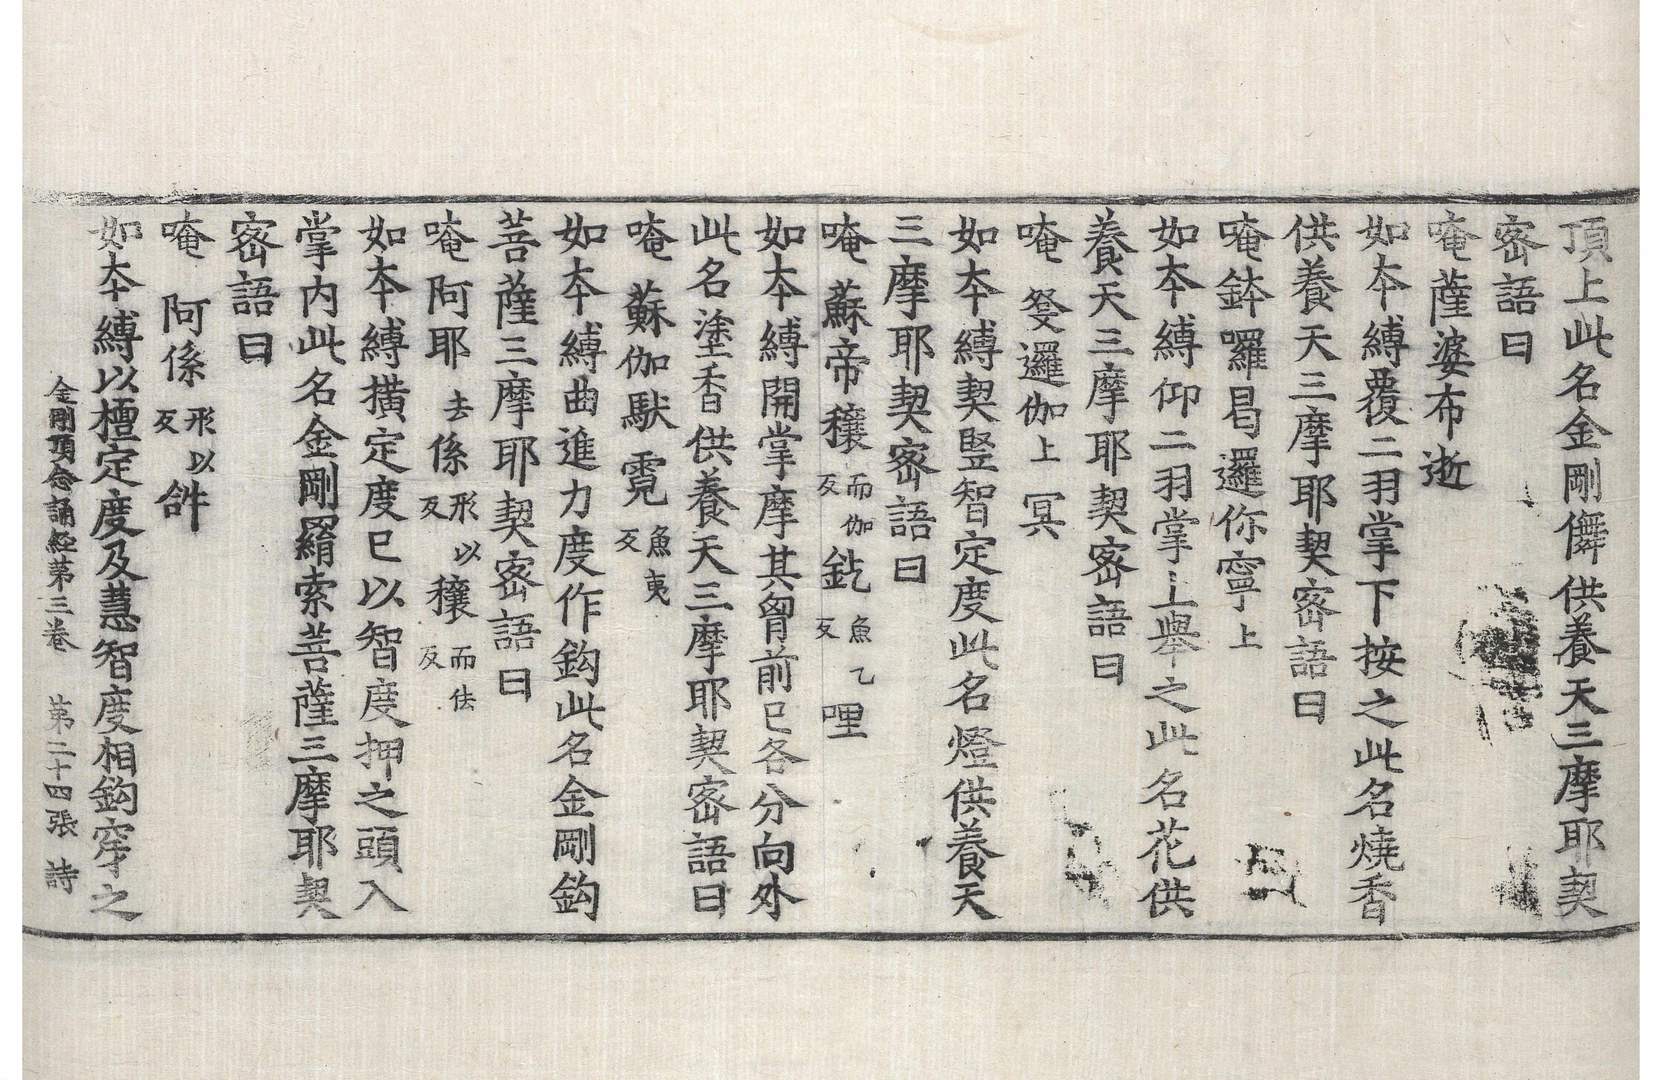 頂上此名金剛儛供養天三摩耶契
密語曰
唵薩婆布逝
如本縛覆二羽掌下按之此名燒香
供養天三摩耶契密語曰
唵鉢囉曷邏你寧上
如本縛仰二羽掌上舉之此名花供
養天三摩耶契密語曰
唵 發邏伽上冥
如本縛契竪智定度此名燈供養天
三摩耶契密語曰
唵蘇帝穰而伽反釳魚乙反哩
如本縛開掌摩其胷前已各分向外
此名塗香供養天三摩耶契密語曰
唵 蘇伽馱霓魚夷反
如本縛曲進力度作鈎此名金剛鈎
菩薩三摩耶契密語曰
唵阿耶去係形以反穰而佉反
如本縛橫定度已以智度押之頭入
掌內此名金剛羂索菩薩三摩耶契
密語曰
唵 阿係形以反𤙖
如本縛以檀定度及慧智度相鈎穿之
金剛頂念誦經第三卷 第二十四張 詩